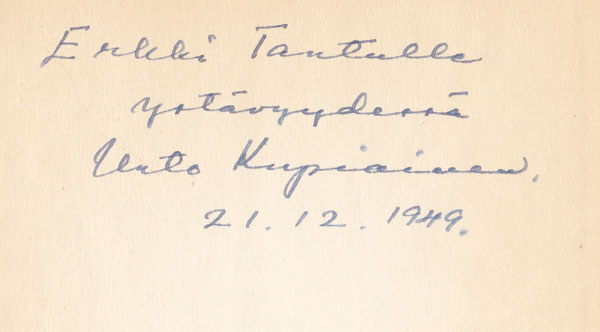 Erkki Tantulle
ystävyydessä
Unto Kupiainen.
21.12.1949.